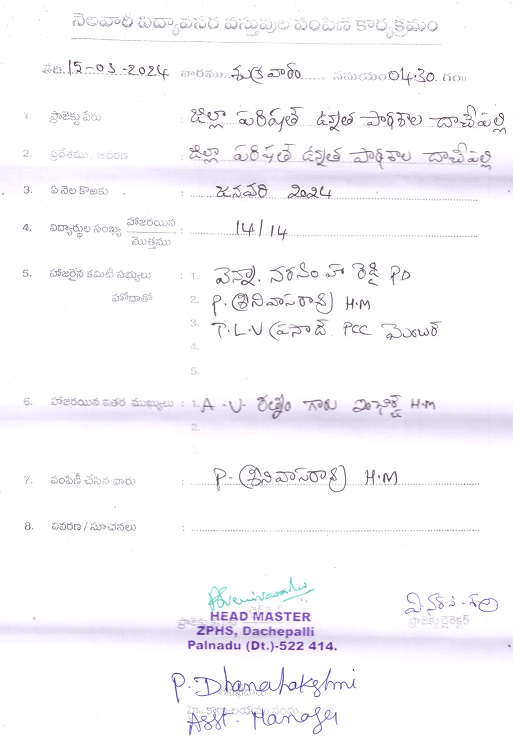 నెలవారీ విద్యావసర వస్తువుల పంపిణీ కార్యక్రమం
తేది 15-03-2024 వారము శుక్రవారం సమయం 04.30 గం॥
1. ప్రాజెక్టు పేరు : జిల్లా పరిషత్ ఉన్నత పాఠశాల దాచేపల్లి
2. ప్రదేశము / ఆవరణ : జిల్లా పరిషత్ ఉన్నత పాఠశాల దాచేపల్లి
3. ఏ నెల కొఱకు : జనవరి 2024
4. విద్యార్థుల సంఖ్య హాజరయిన / మొత్తము : 14/14
5. హాజరైన కమిటీ సభ్యులు : 1. వెన్నా. నరసింహా రెడ్డి PD
హోదాతో 2. P. శ్రీనివాసరావు H.M
3. T.L.V ప్రసాద్. PCC మెంబర్
4.
5.
6. హాజరయిన ఇతర ముఖ్యులు : 1. A.V. రత్నం గారు ఇంఛార్జ్ H.M
2.
3.
7. పంపిణీ చేసిన వారు : P. శ్రీనివాసరావు H.M
8. వివరణ / సూచనలు :
HEAD MASTER
ZPHS, Dachepalli
Palnadu (Dt.)-522 414.
ప్రాజెక్టు డైరెక్టర్
P. Dhanalakshmi
Asst. Manager